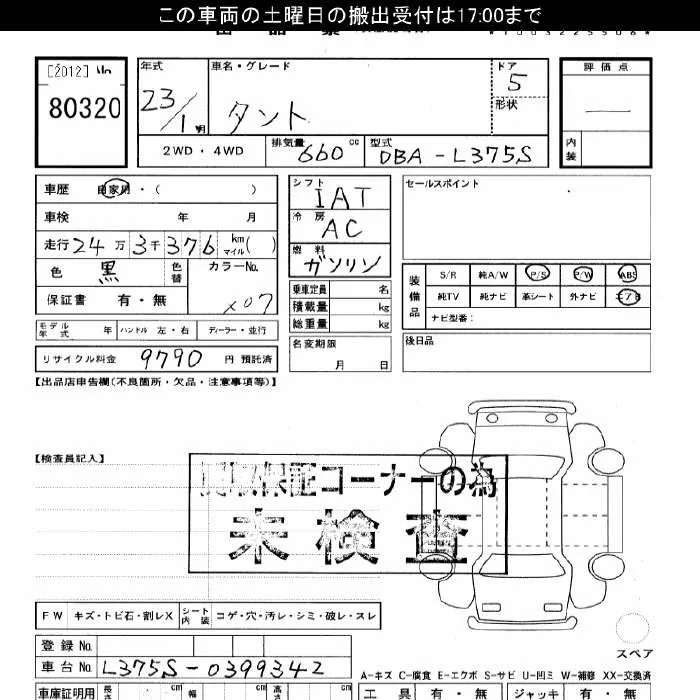 この車両の土曜日の搬出受付は17:00まで
[2012] No
80320
年式
23/1
車名・グレード
タント
ドア
5
形状
評価点
内装
2WD・4WD
排気量
660 cc
型式
DBA-L375S
車歴 自家用・( )
車検 年 月
走行 24万3千376 km マイル( )
色 黒 色替 カラーNo.
X07
保証書 有・無
モデル年式 年 ハンドル 左・右 ディーラー・並行
リサイクル料金 9790 円 預託済
シフト
IAT
冷房
AC
燃料
ガソリン
乗車定員 名
積載量 kg
総重量 kg
名変期限
月 日
セールスポイント
装備品
S/R 純A/W P/S P/W ABS
純TV 純ナビ 革シート 外ナビ エアB
ナビ型番:
後日品
【出品店申告欄(不良箇所・欠品・注意事項等)】
【検査員記入】
保証コーナーの為
未検査
FW キズ・トビ石・割レX シート内装 コゲ・穴・汚レ・シミ・破レ・スレ
スペア
登録No.
車台No. L375S-0399342
A-キズ C-腐食 E-エクボ S-サビ U-凹ミ W-補修 XX-交換済
車庫証明用 長さ cm 幅 cm 高さ cm
工具 有・無 ジャッキ 有・無